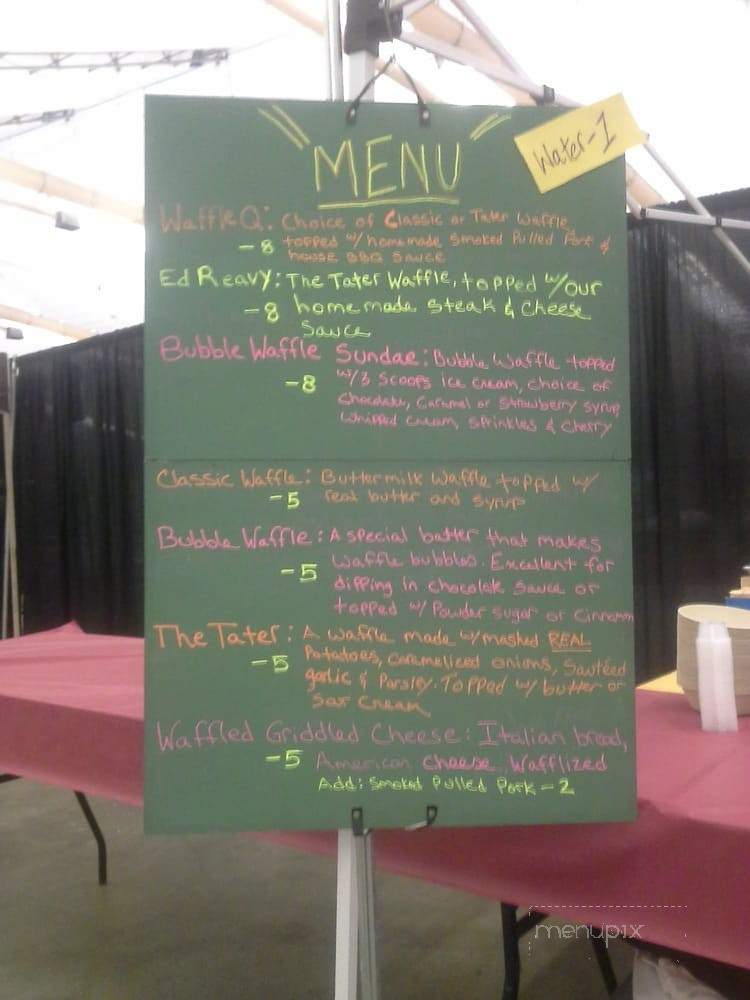 MENU
Water-1
Waffle Q: Choice of Classic or Tater Waffle,
-8 topped w/ homemade Smoked Pulled Pork &
house BBQ Sauce
Ed Reavy: The Tater Waffle, topped w/our
-8 homemade steak & Cheese
Sauce
Bubble Waffle Sundae: Bubble Waffle topped
-8 w/3 Scoops ice cream, choice of
Chocolate, Caramel or Strawberry syrup,
Whipped Cream, Sprinkles & Cherry
Classic Waffle: Buttermilk Waffle topped w/
-5 real butter and syrup
Bubble Waffle: A special batter that makes
-5 Waffle bubbles. Excellent for
dipping in chocolate sauce or
topped w/ Powder sugar or Cinnamm
The Tater: A Waffle made w/mashed REAL
-5 Potatoes, caramelized onions, Sautéed
garlic & Parsley. Topped w/ butter or
Sour Cream
Waffled Griddled Cheese: Italian bread,
-5 American cheese, Wafflized
Add: Smoked Pulled Pork - 2
menupix